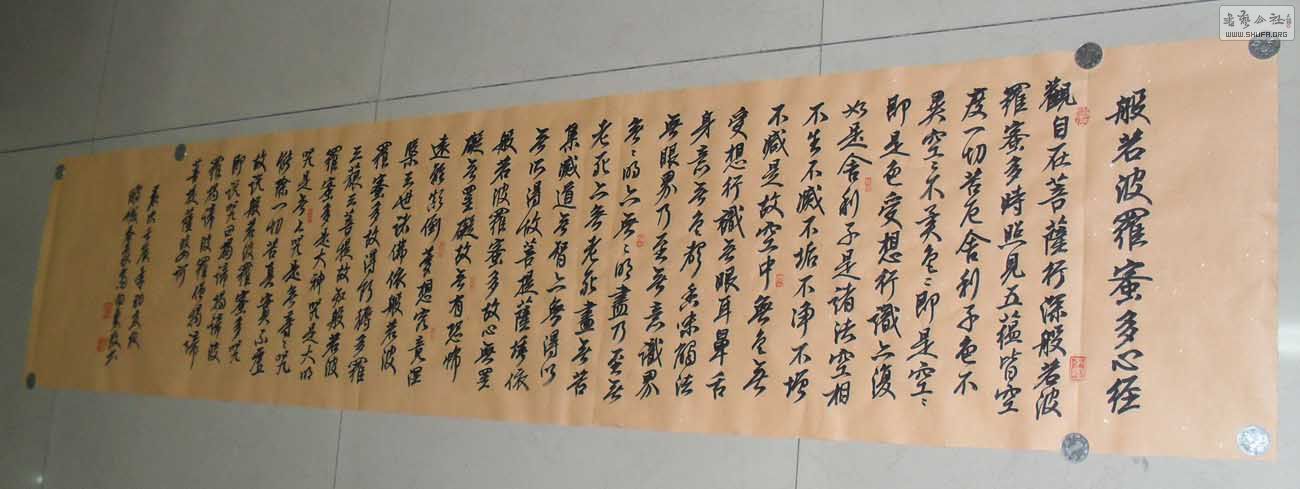 般若波羅蜜多心经
觀自在菩薩行深般若波
羅蜜多時照見五蕴皆空
度一切苦厄舍利子色不
異空〻不異色〻即是空〻
即是色受想行識亦復
如是舍利子是諸法空相
不生不滅不垢不净不增
不減是故空中無色無
受想行識無眼耳鼻舌
身意無色声香味觸法
無眼界乃至無意識界
無〻明亦無〻明盡乃至無
老死亦無老死盡無苦
集滅道無智亦無得以
無所得故菩提薩埵依
般若波羅蜜多故心無罣
礙無罣礙故無有恐怖
遠離顛倒夢想究竟涅
槃三世诸佛依般若波
羅蜜多故得阿耨多羅
三藐三菩提故知般若波
羅蜜多是大神咒是大明
咒是無上咒是無等〻咒
能除一切苦真實不虚
故説般若波羅蜜多咒
即説咒曰揭諦揭諦波
羅揭諦波羅僧揭諦
菩提薩婆訶
歲次壬辰年初夏於
書藝公社
WWW.SHUFA.ORG